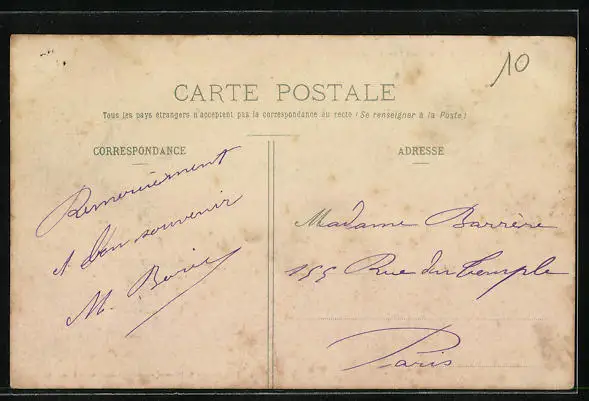 10
CARTE POSTALE
Tous les pays étrangers n'acceptent pas la correspondance au recto (Se renseigner à la Poste)
CORRESPONDANCE
ADRESSE
Remerciement
et bon souvenir
M.
Madame Barrère
155 Rue du Temple
Paris